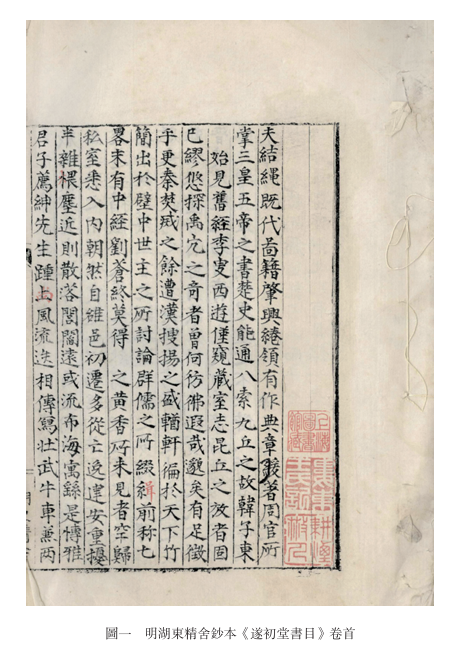 夫結繩既代啚籍肇興綣領有作典章著周官所
掌三皇五帝之書楚史能通八索九丘之故韓子東
始見舊經李叟西遊僅窺藏室志昆丘之放者固
已繆悠探禹穴之奇者曾何彷彿遐哉邈矣有足徵
乎更秦焚烕之餘遭漢搜揚之盛輶軒徧於天下竹
簡出於壁中世主之所討論群儒之所綴緝前称七
畧末有中經劉蒼終莫得 之黄香所未見者罕歸
私室悉入内朝然自雒邑初遷多從亡逸建安重擾
半雜煨塵近則散落閭閻遠或流布海寓繇是博雅
君子薦紳先生踵上風流迭相傳寫壯武牛車兼兩
上海圖書館藏
圖一　明湖東精舍鈔本《遂初堂書目》卷首